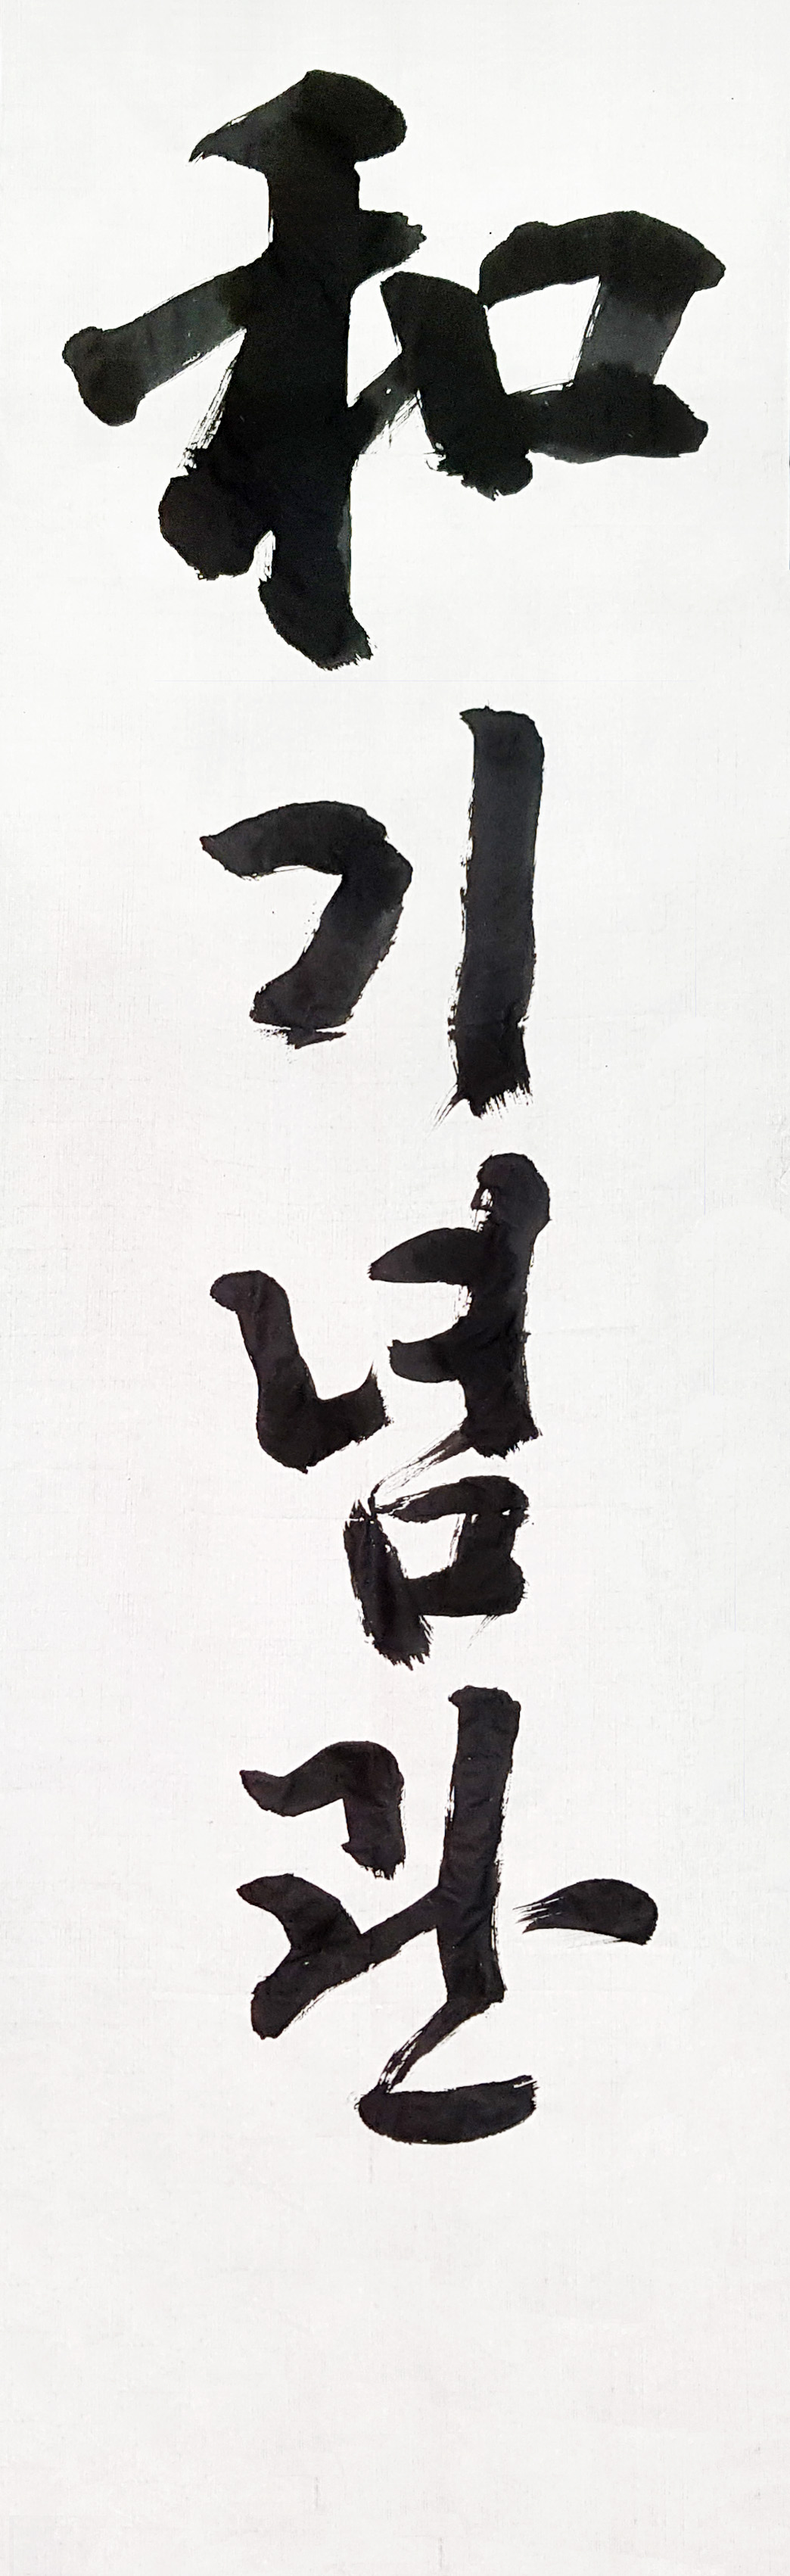 和기념관